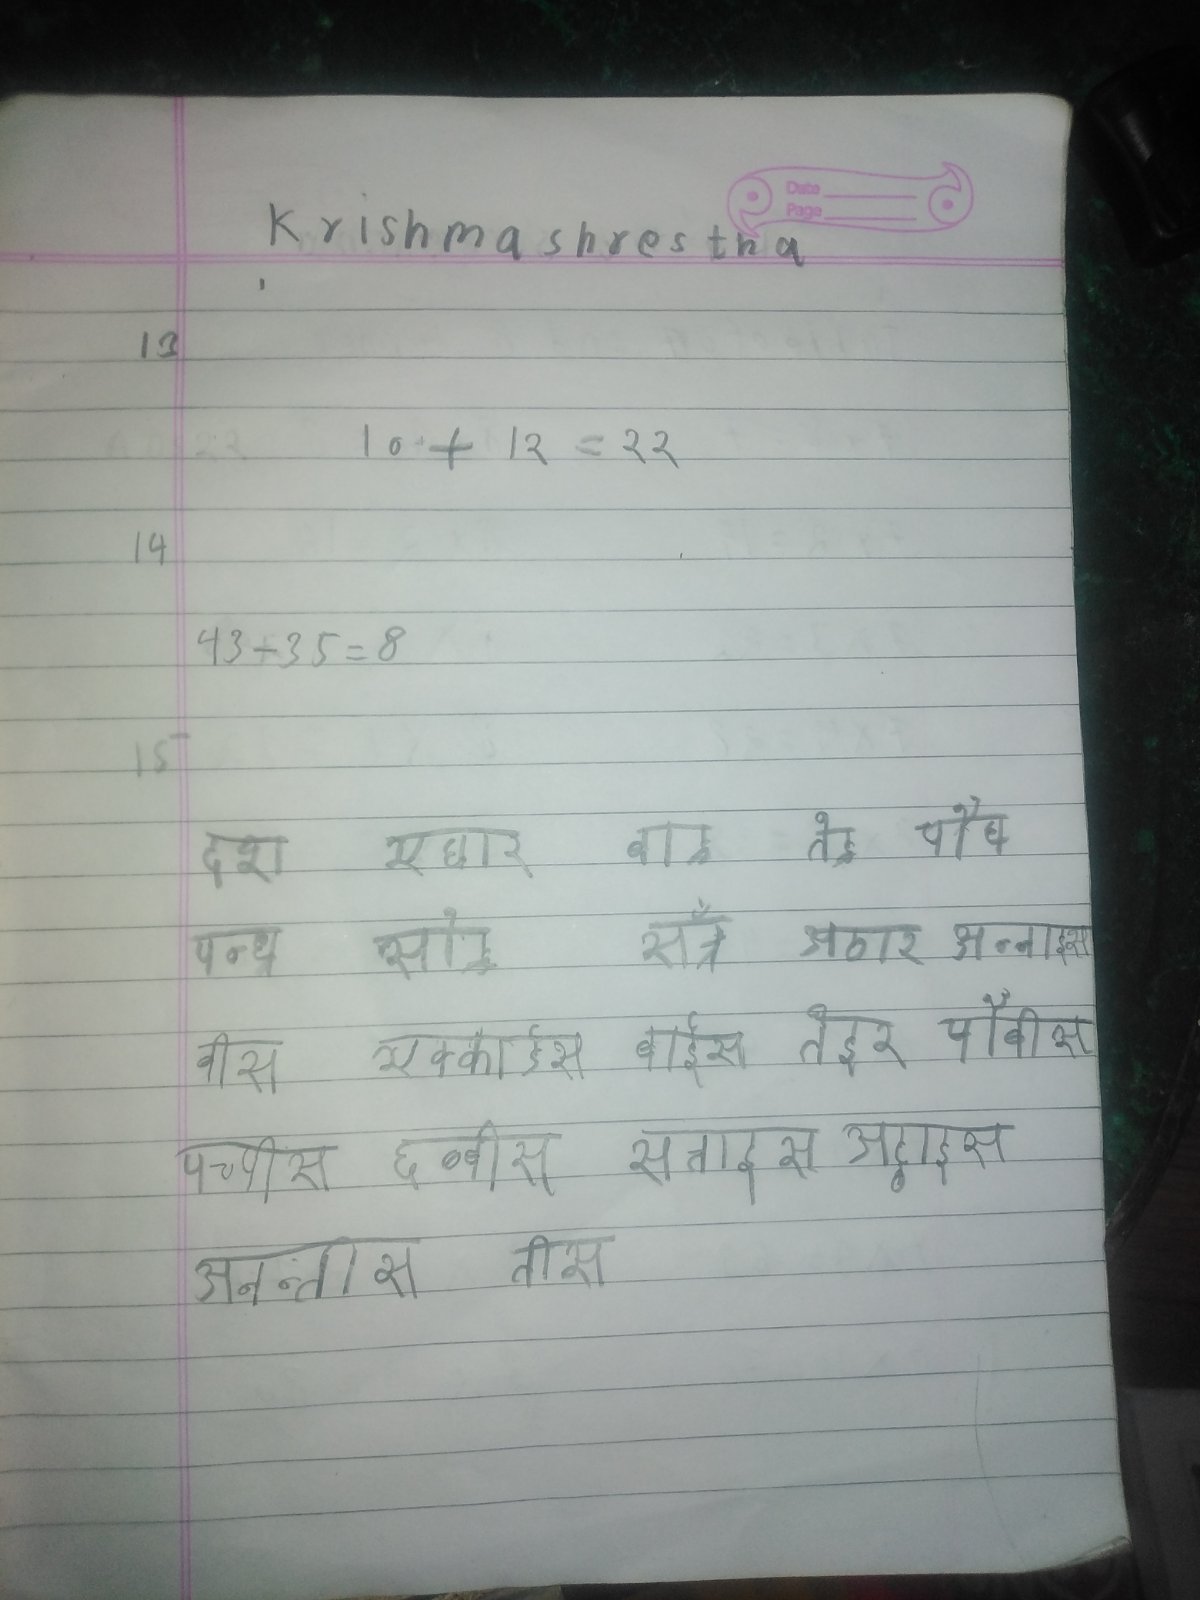 Date
Page
Krishma shrestha
13
10 + 12 = 22
14
43+35=8
15
दश एघार बाह्र तेह्र चौध
पन्ध्र सोह्र सत्र अठार अन्नाइस
बीस एक्काईस बाईस तेइर चौबीस
पच्चीस छब्बीस सत्ताइस अट्ठाइस
अनन्तीस तीस